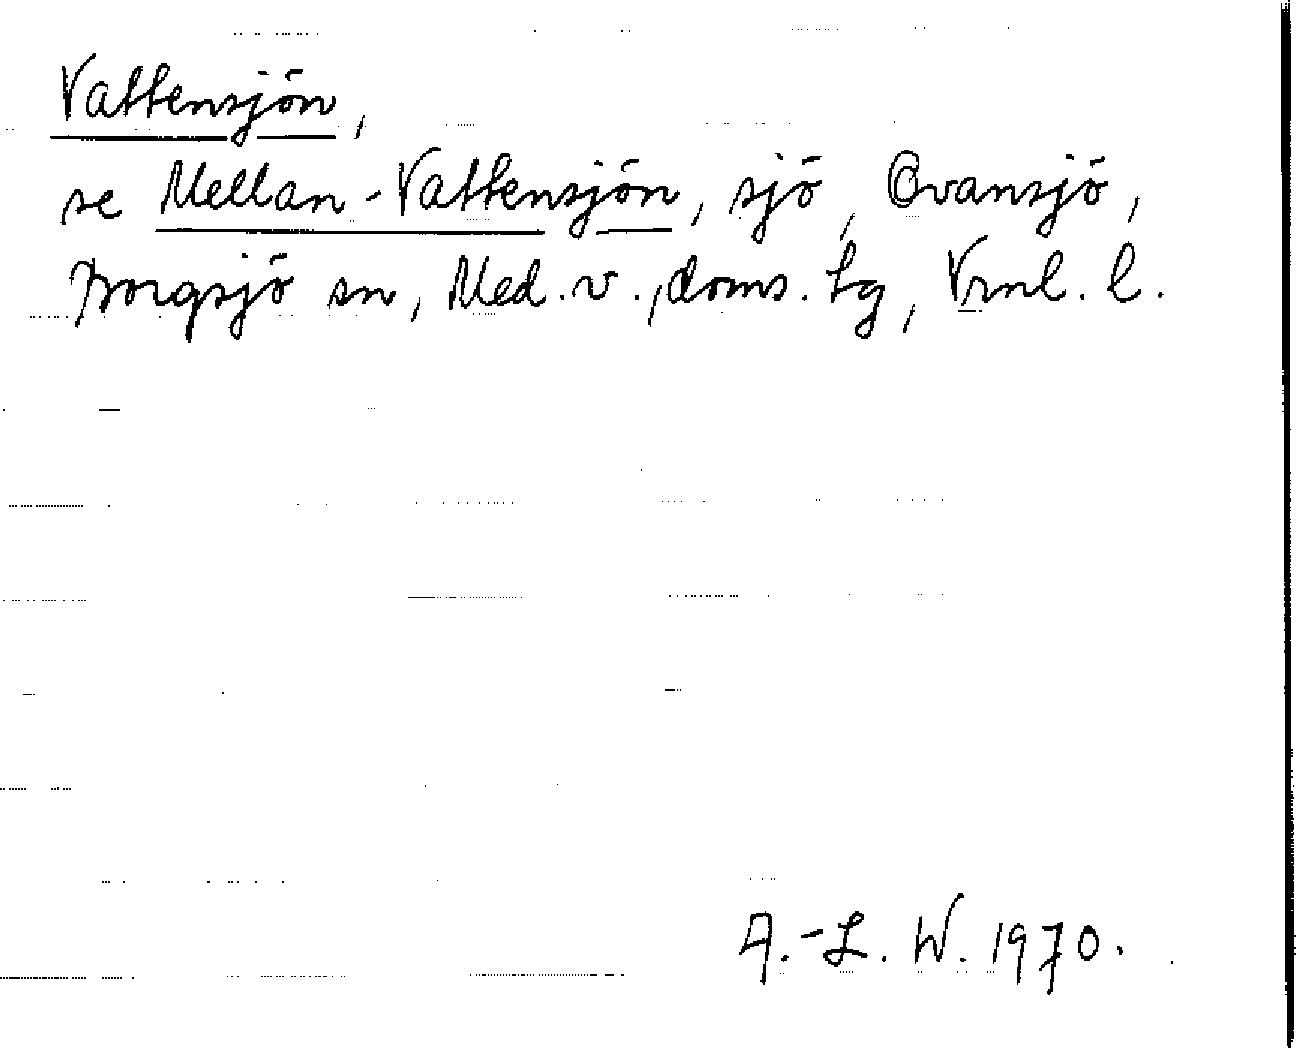 Vattensjön,
se Mellan-Vattensjön, sjö, Ovansjö,
Borgsjö sn, Med. v., doms. tg, Vrnl. l.
A.-L. W. 1970.